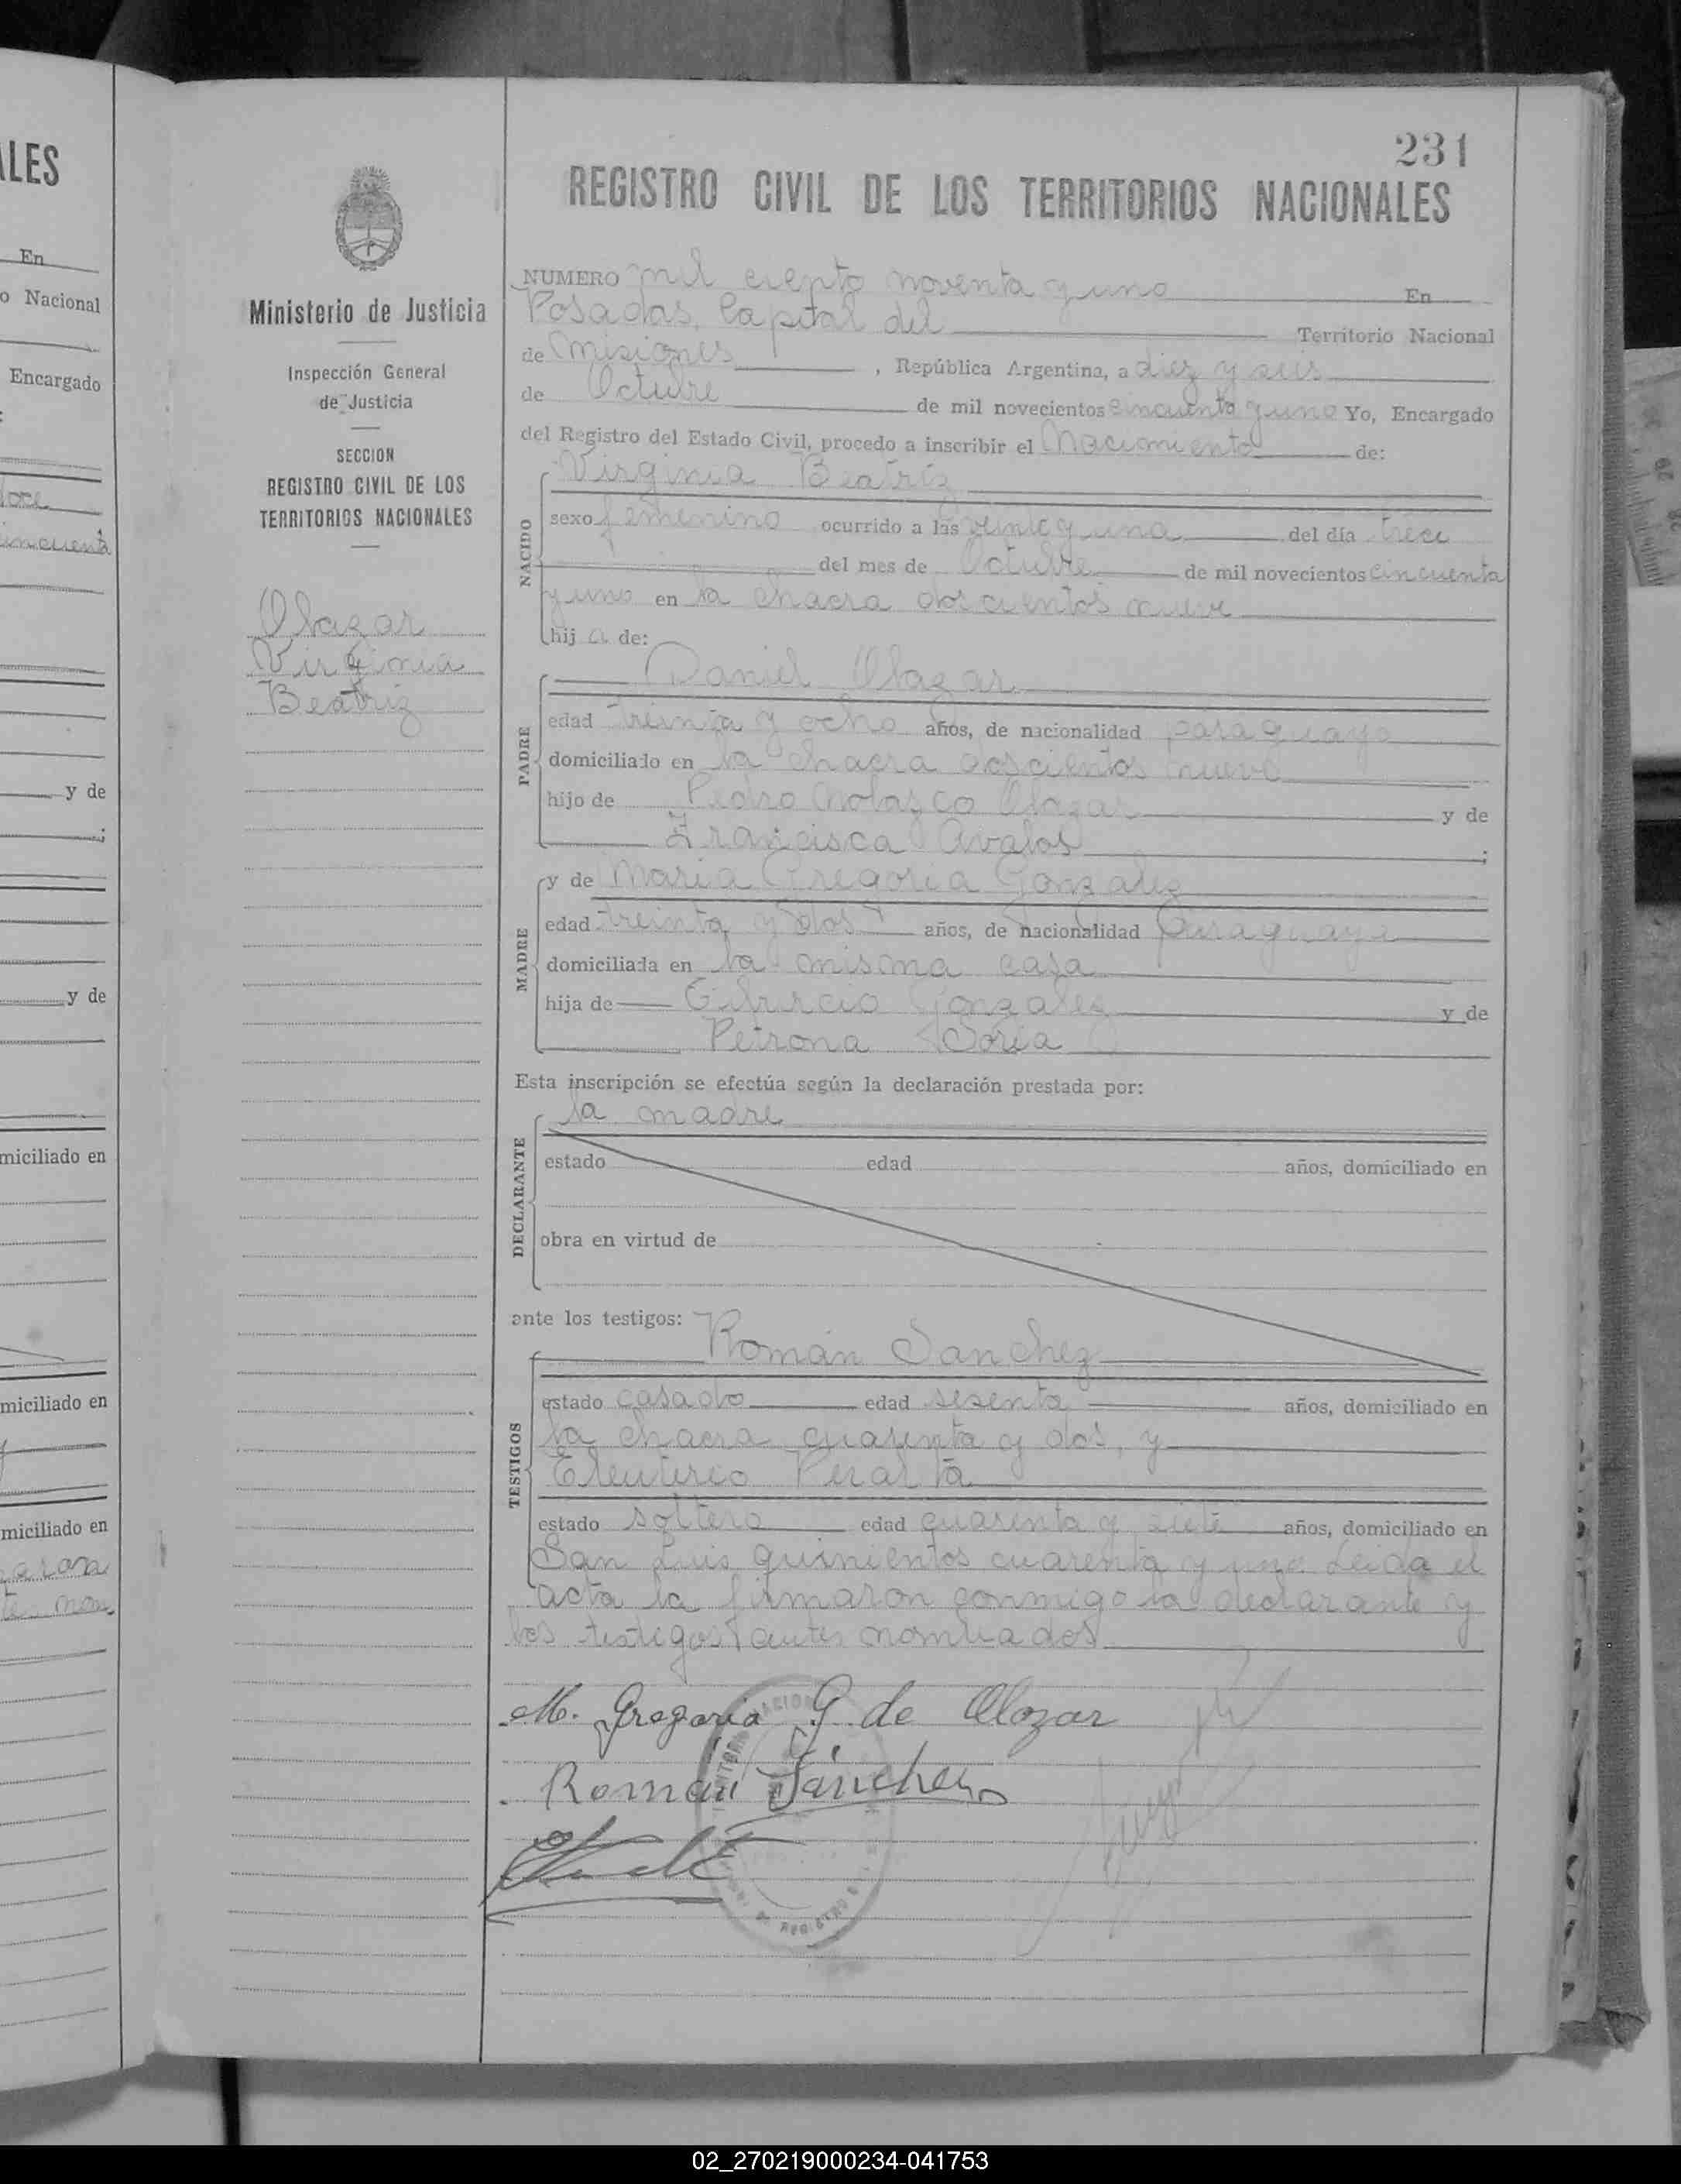 ALES
En
o Nacional
Encargado
doce
cincuenta
y de
y de
miciliado en
miciliado en
miciliado en
231
REGISTRO CIVIL DE LOS TERRITORIOS NACIONALES
Ministerio de Justicia
Inspección General
de Justicia
SECCION
REGISTRO CIVIL DE LOS
TERRITORIOS NACIONALES
Olazar
Virginia
Beatriz
NUMERO mil ciento noventa y uno En
Posadas, Capital del Territorio Nacional
de Misiones, República Argentina, a diez y seis
de Octubre de mil novecientos cincuenta y uno Yo, Encargado
del Registro del Estado Civil, procedo a inscribir el Nacimiento de:
NACIDO
Virginia Beatriz
sexo femenino ocurrido a las veinte y una del día trece
del mes de Octubre de mil novecientos cincuenta
y uno en la chacra doscientos nueve
hij a de:
PADRE
Daniel Olazar
edad treinta y ocho años, de nacionalidad paraguayo
domiciliado en la chacra doscientos nueve
hijo de Pedro Nolazco Olazar y de
Francisca Avalos ;
MADRE
y de Maria Gregoria Gonzalez
edad treinta y dos años, de nacionalidad Paraguaya
domiciliada en la misma casa
hija de Tiburcio Gonzalez y de
Petrona Soria
Esta inscripción se efectúa según la declaración prestada por:
DECLARANTE
la madre
estado edad años, domiciliado en
obra en virtud de
ante los testigos:
TESTIGOS
Román Sanchez
estado casado edad sesenta años, domiciliado en
la chacra cuarenta y dos, y
Eleuterio Peralta
estado soltero edad cuarenta y siete años, domiciliado en
San Luis quinientos cuarenta y uno Leida el
acta la firmaron conmigo la declarante y
los testigos antes nombrados
M. Gregoria G. de Olazar
Román Sánchez
02_270219000234-041753